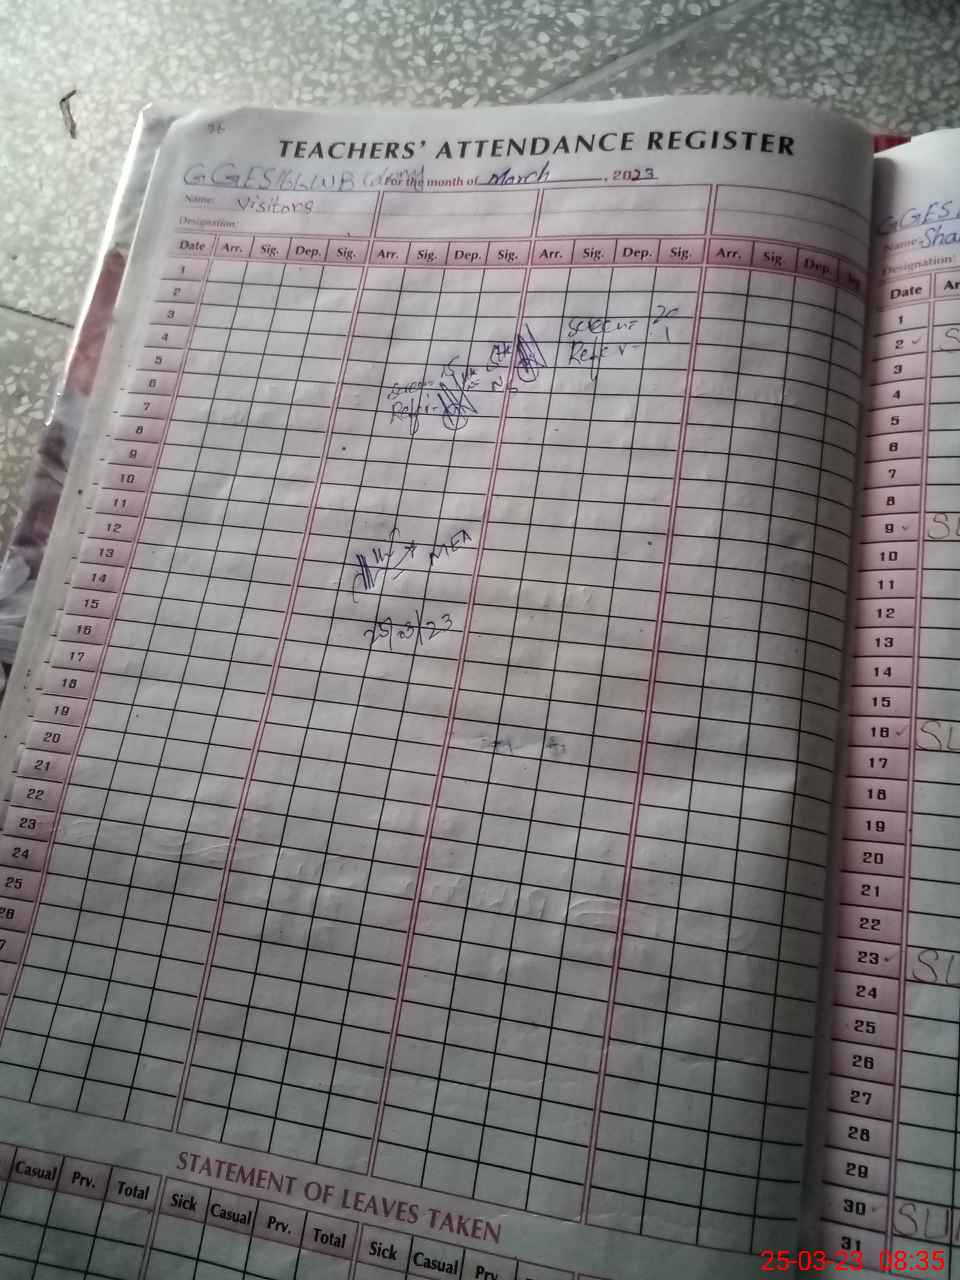 26
TEACHERS' ATTENDANCE REGISTER
For the month of March, 2023
Name: Visitors
Designation:
Date Arr. Sig. Dep. Sig. Arr. Sig. Dep. Sig. Arr. Sig. Dep. Sig. Arr. Sig. Dep.
1
2
3
4
5
6
7
8
9
10
11
12
13
14
15
16
17
18
19
20
21
22
23
24
25
Refer - 1
MEA
25/03/23
STATEMENT OF LEAVES TAKEN
Casual Prv. Total Sick Casual Prv. Total Sick Casual
GGES
Name: Sha
Designation:
Date Ar
1
2
3
4
5
6
7
8
9
10
11
12
13
14
15
16
17
18
19
20
21
22
23
24
25
26
27
28
29
30
31
25-03-23 08:35